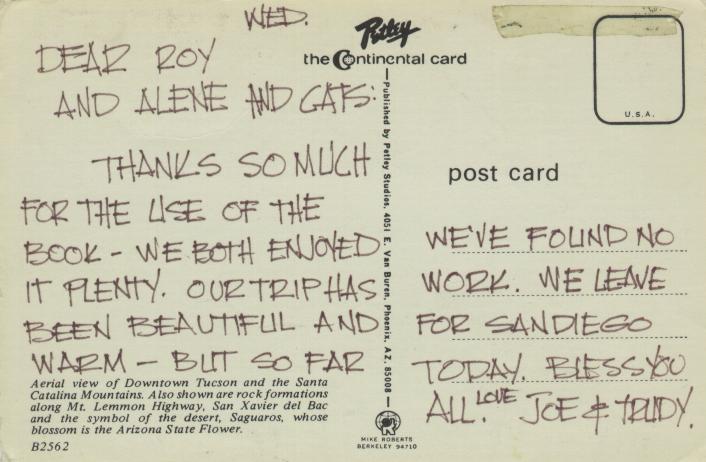 WED.
DEAR ROY
AND ALENE AND CATS:
THANKS SO MUCH
FOR THE USE OF THE
BOOK - WE BOTH ENJOYED
IT PLENTY. OUR TRIP HAS
BEEN BEAUTIFUL AND
WARM - BUT SO FAR
Aerial view of Downtown Tucson and the Santa
Catalina Mountains. Also shown are rock formations
along Mt. Lemmon Highway, San Xavier del Bac
and the symbol of the desert, Saguaros, whose
blossom is the Arizona State Flower.
B2562
Petley
the Continental card
Published by Petley Studios, 4051 E. Van Buren, Phoenix, AZ. 85008
MIKE ROBERTS
BERKELEY 94710
U.S.A.
post card
WE'VE FOUND NO
WORK. WE LEAVE
FOR SAN DIEGO
TODAY. BLESS YOU
ALL. LOVE JOE & TRUDY.